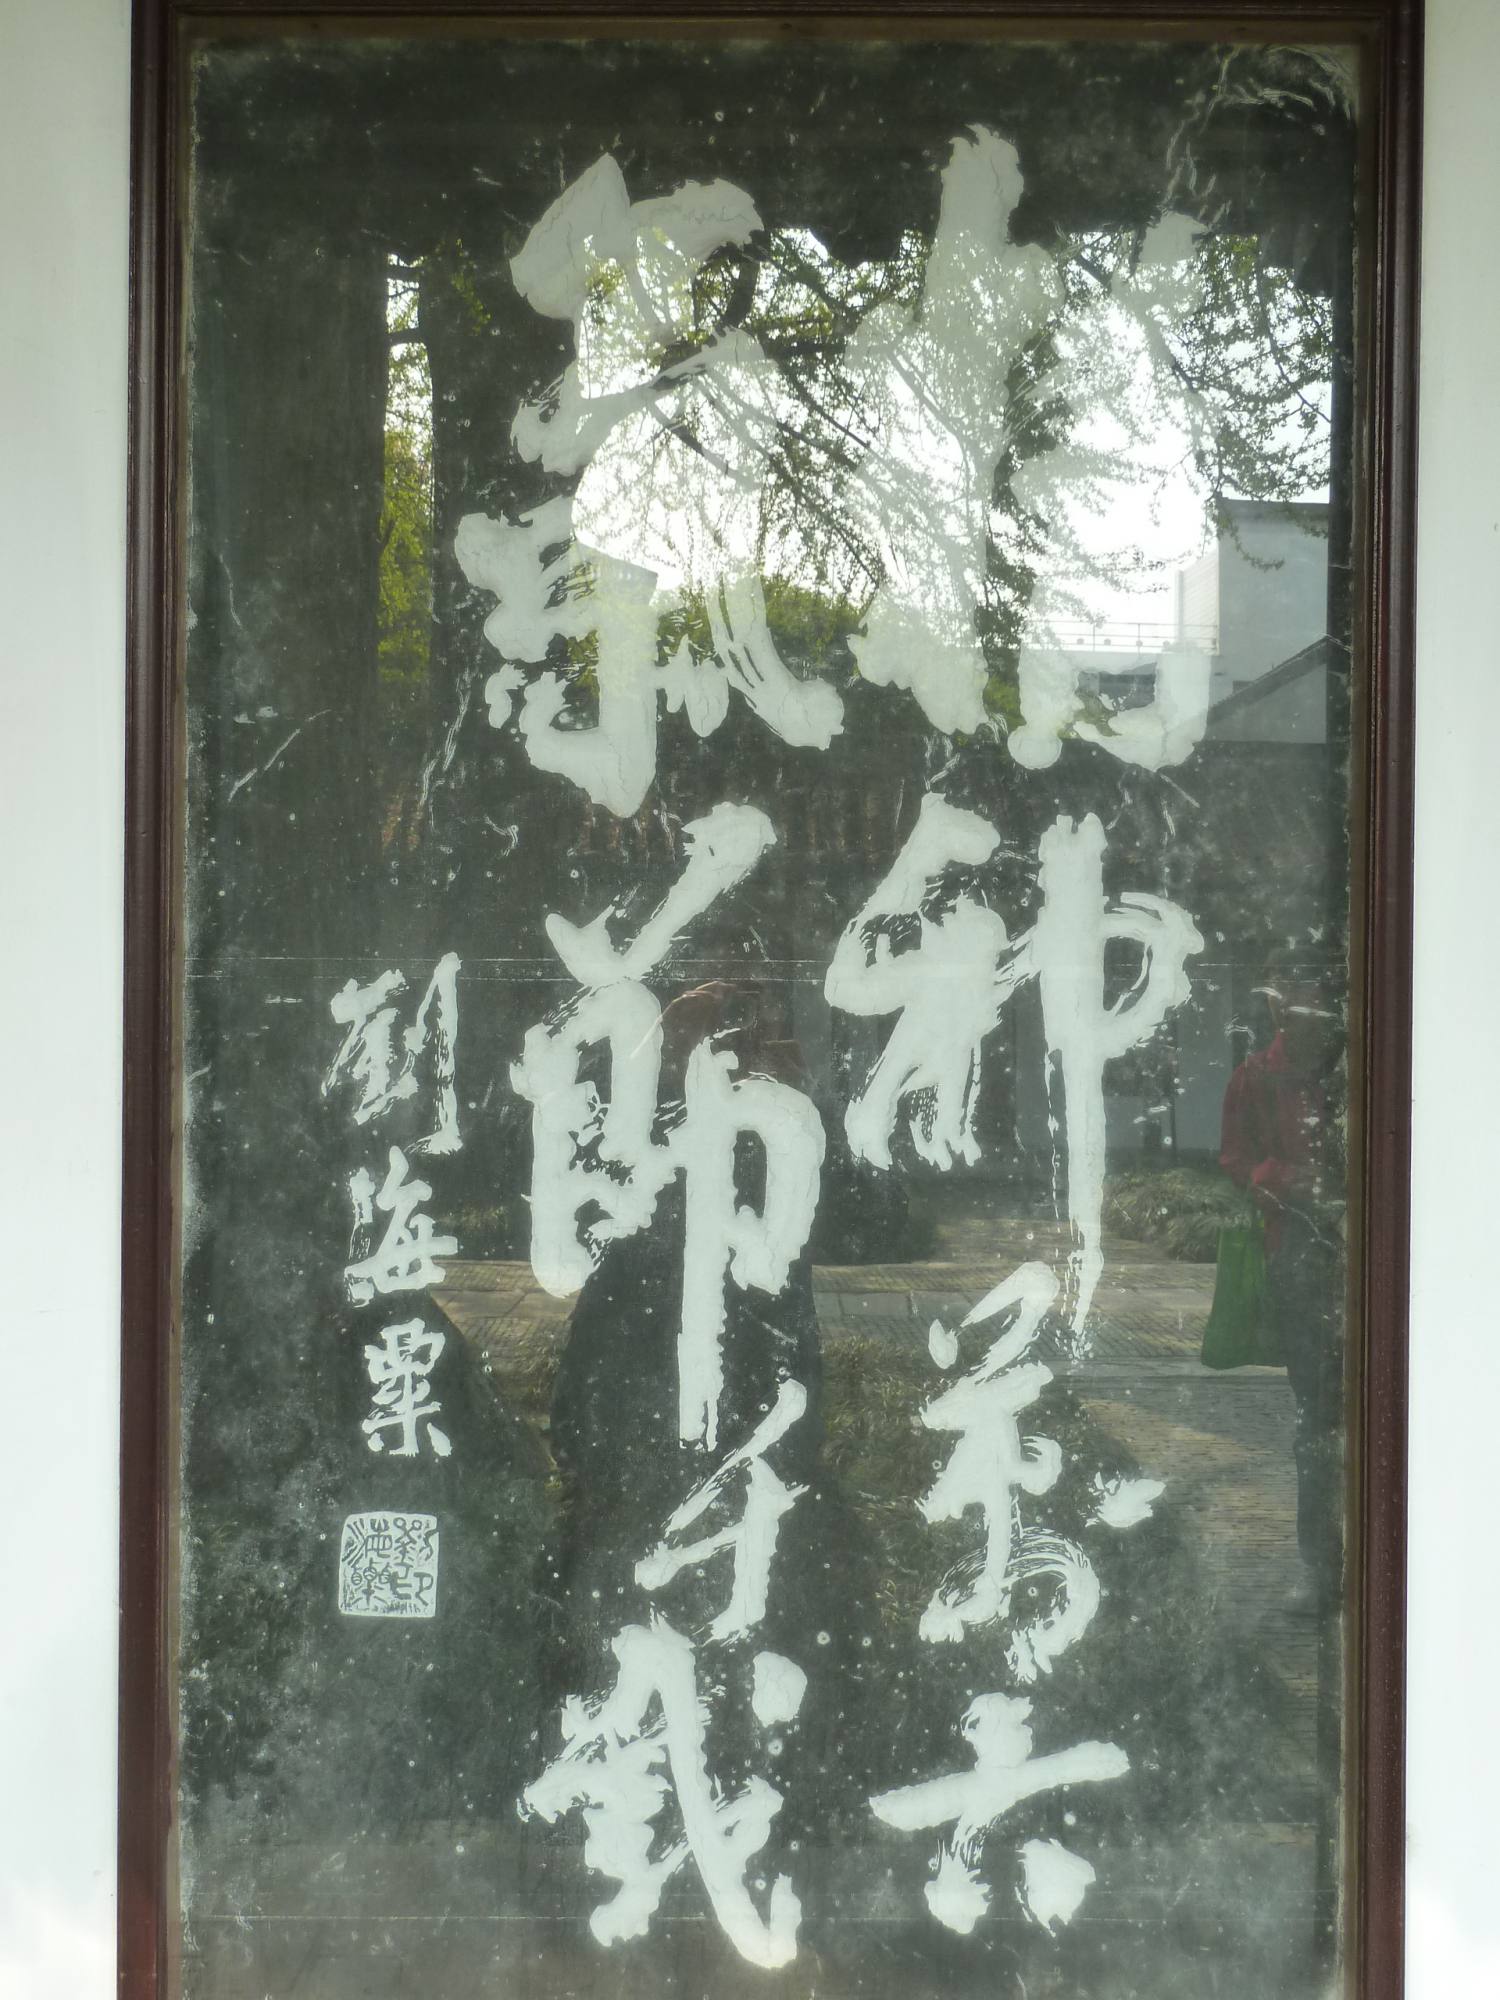 精神萬古
氣節千載
劉海粟
劉海粟印